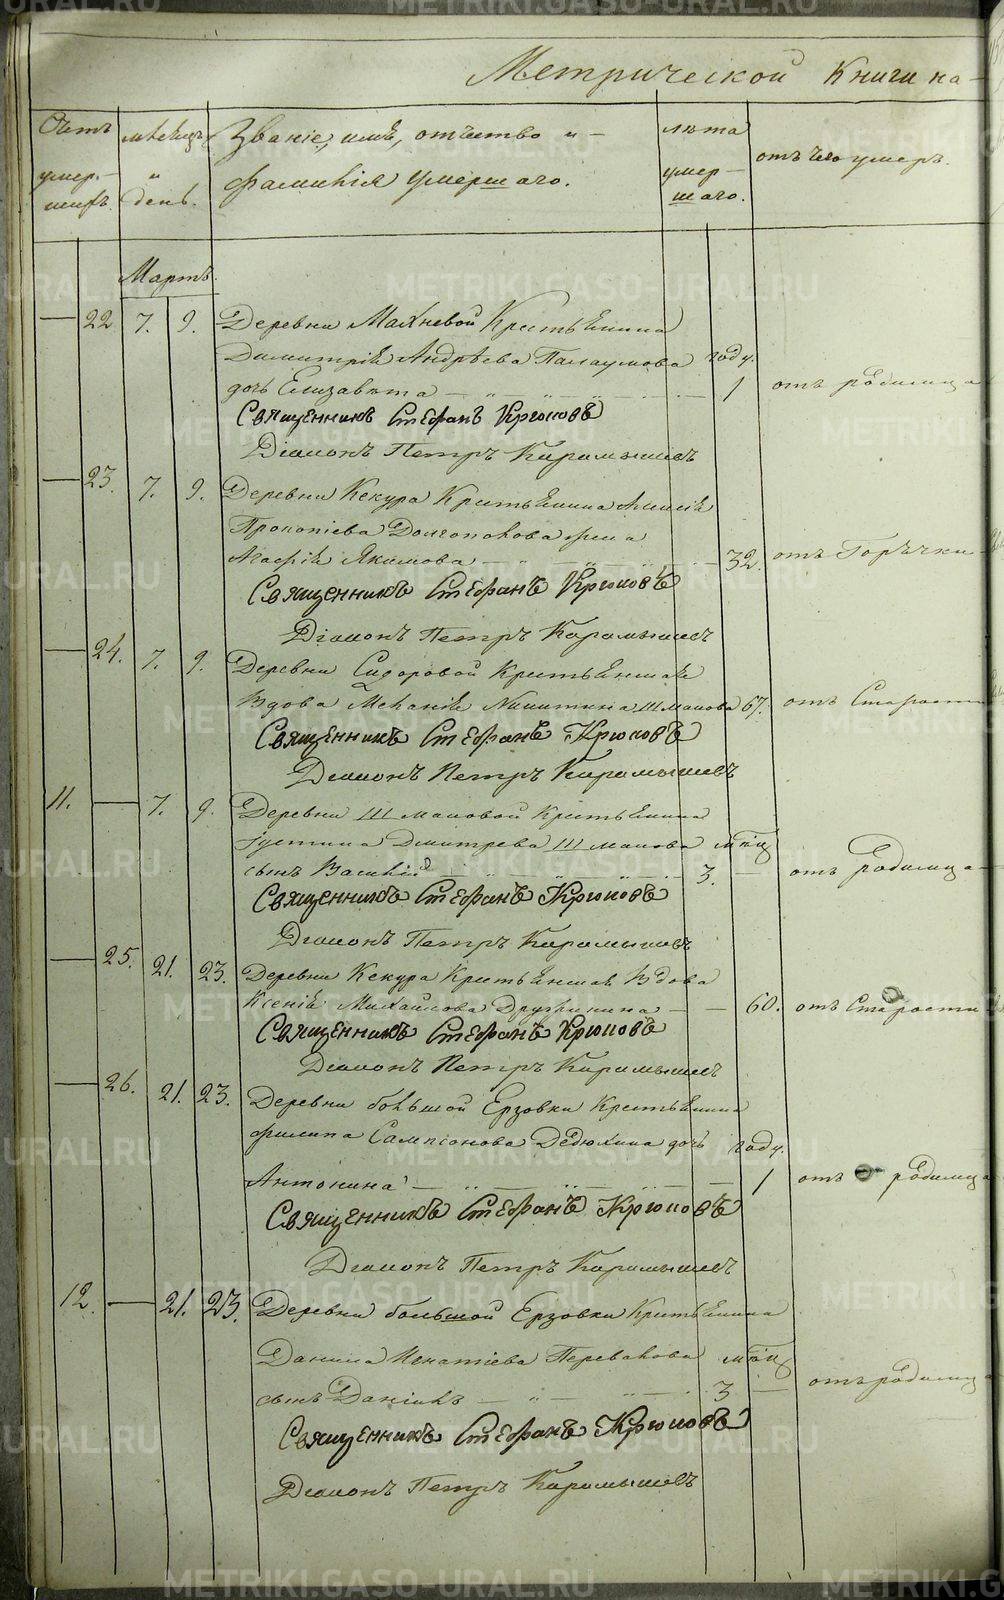 Метрической Книги на
Счетъ умер- шихъ
месецъ и день.
Званіе, имѣ, отчество и -
фамилія умершаго.
лѣта умер- шаго.
отъ чего умеръ.
Мартъ.
22 7. 9. Деревни Махневой Крестьянина
Димитрія Андрѣева году.
дочь Елизавета 1 отъ родимца
Священникъ Стефанъ Крюковъ
Діаконъ Петръ Карамышевъ
23. 7. 9. Деревни Кекура Крестьянина
Прокопіева Долгополова жена
Агафія Якимова 32. отъ Горячки
Священникъ Стефанъ Крюковъ
Діаконъ Петръ Карамышевъ
24. 7. 9. Деревни Сидоровой Крестьянская
Вдова Меланія Никитина Шмакова 67. отъ Старости
Священникъ Стефанъ Крюковъ
Діаконъ Петръ Карамышевъ
11. 7. 9. Деревни Шмаковой Крестьянина
Іустина Дмитрева Шмакова мѣсяц
сынъ Василій 3. отъ Родимца
Священникъ Стефанъ Крюковъ
Діаконъ Петръ Карамышевъ
25. 21. 23. Деревни Кекура Крестьянская Вдова
Ксенія Михайлова Дружинина 60. отъ Старости
Священникъ Стефанъ Крюковъ
Діаконъ Петръ Карамышевъ
26. 21. 23. Деревни большой Ерзовки Крестьянина
Филипа Сампсонова Дедюхина дочь году.
Антонина 1 отъ родимца
Священникъ Стефанъ Крюковъ
Діаконъ Петръ Карамышевъ
12. 21. 23. Деревни большой Ерзовки Крестьянина
Данила Игнатіева Перевалова мѣсяц
сынъ Даніилъ 3 отъ родимца
Священникъ Стефанъ Крюковъ
Діаконъ Петръ Карамышевъ
METRIKI.GASO-URAL.RU